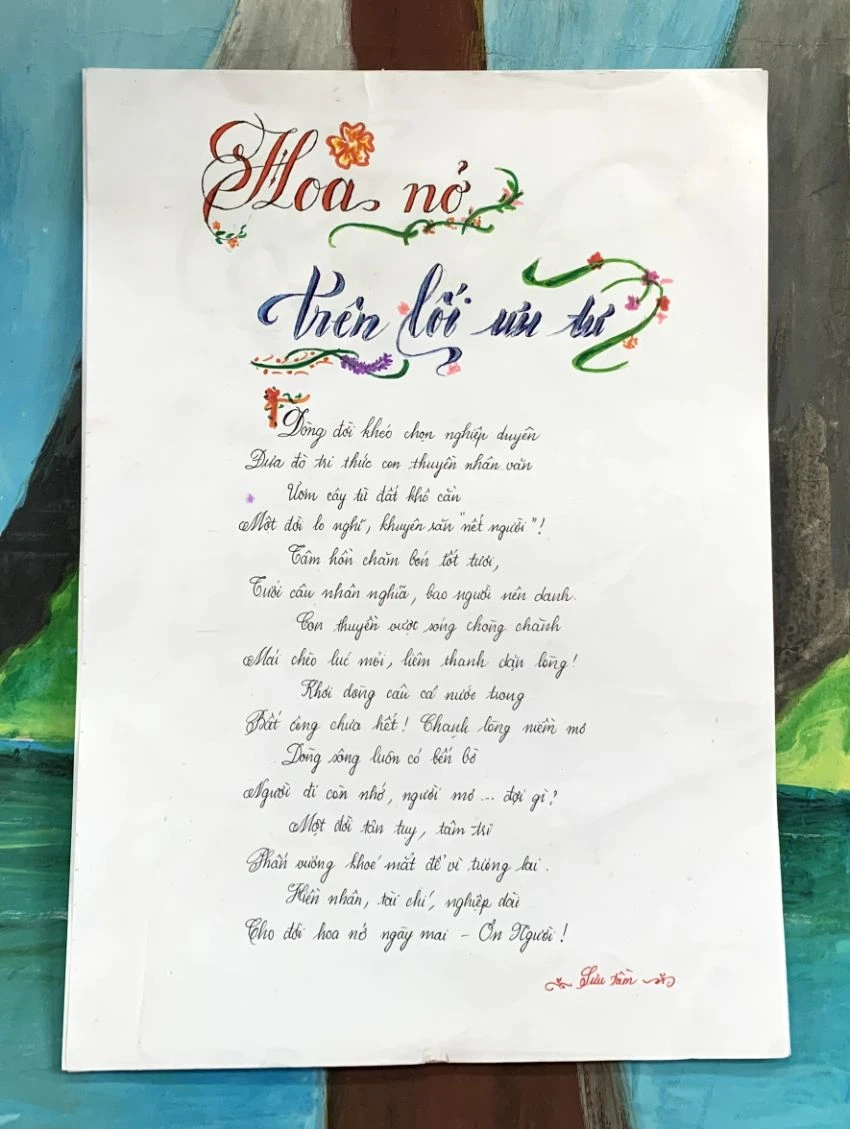 Hoa nở
trên lối ưu tư
Dòng đời khéo chọn nghiệp duyên
Đưa đò tri thức con thuyền nhân văn
Ươm cây từ đất khô cằn
Một đời lo nghĩ, khuyên răn "nết người"!
Tâm hồn chăm bón tốt tươi,
Tưới câu nhân nghĩa, bao người nên danh.
Con thuyền vượt sóng chòng chành
Mái chèo lúc mỏi, liêm thanh dặn lòng!
Khơi dòng cầu cá nước trong
Bất công chưa hết! Chạnh lòng niềm mơ
Dòng sông luôn có bến bờ
Người đi còn nhớ, người mơ ... đợi gì?
Một đời tận tuỵ, tâm trí
Phấn vương khoé mắt để vì tương lai.
Hiền nhân, tài chí, nghiệp dài
Cho đời hoa nở ngày mai - Ơn Người!
Sưu tầm